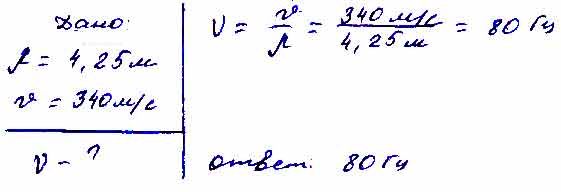 Дано:
λ = 4,25 м
v = 340 м/с
ν - ?
ν = v/λ = 340 м/с / 4,25 м = 80 Гц
ответ: 80 Гц